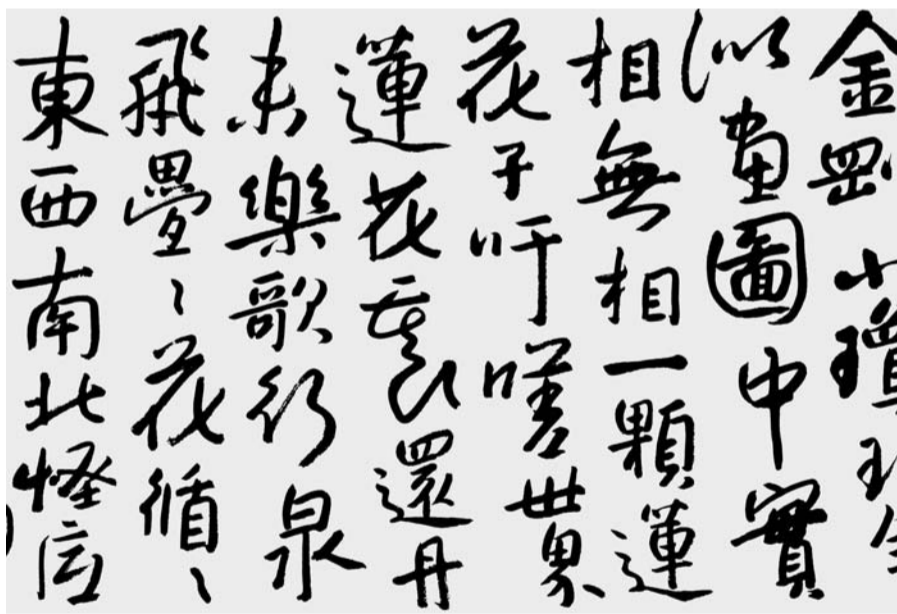 金剛小瓊玖
似畫圖中實
相無相一顆蓮
花子吁嗟世界
蓮花裏還丹
未樂歌行泉
飛疊疊花循循
東西南北怪底